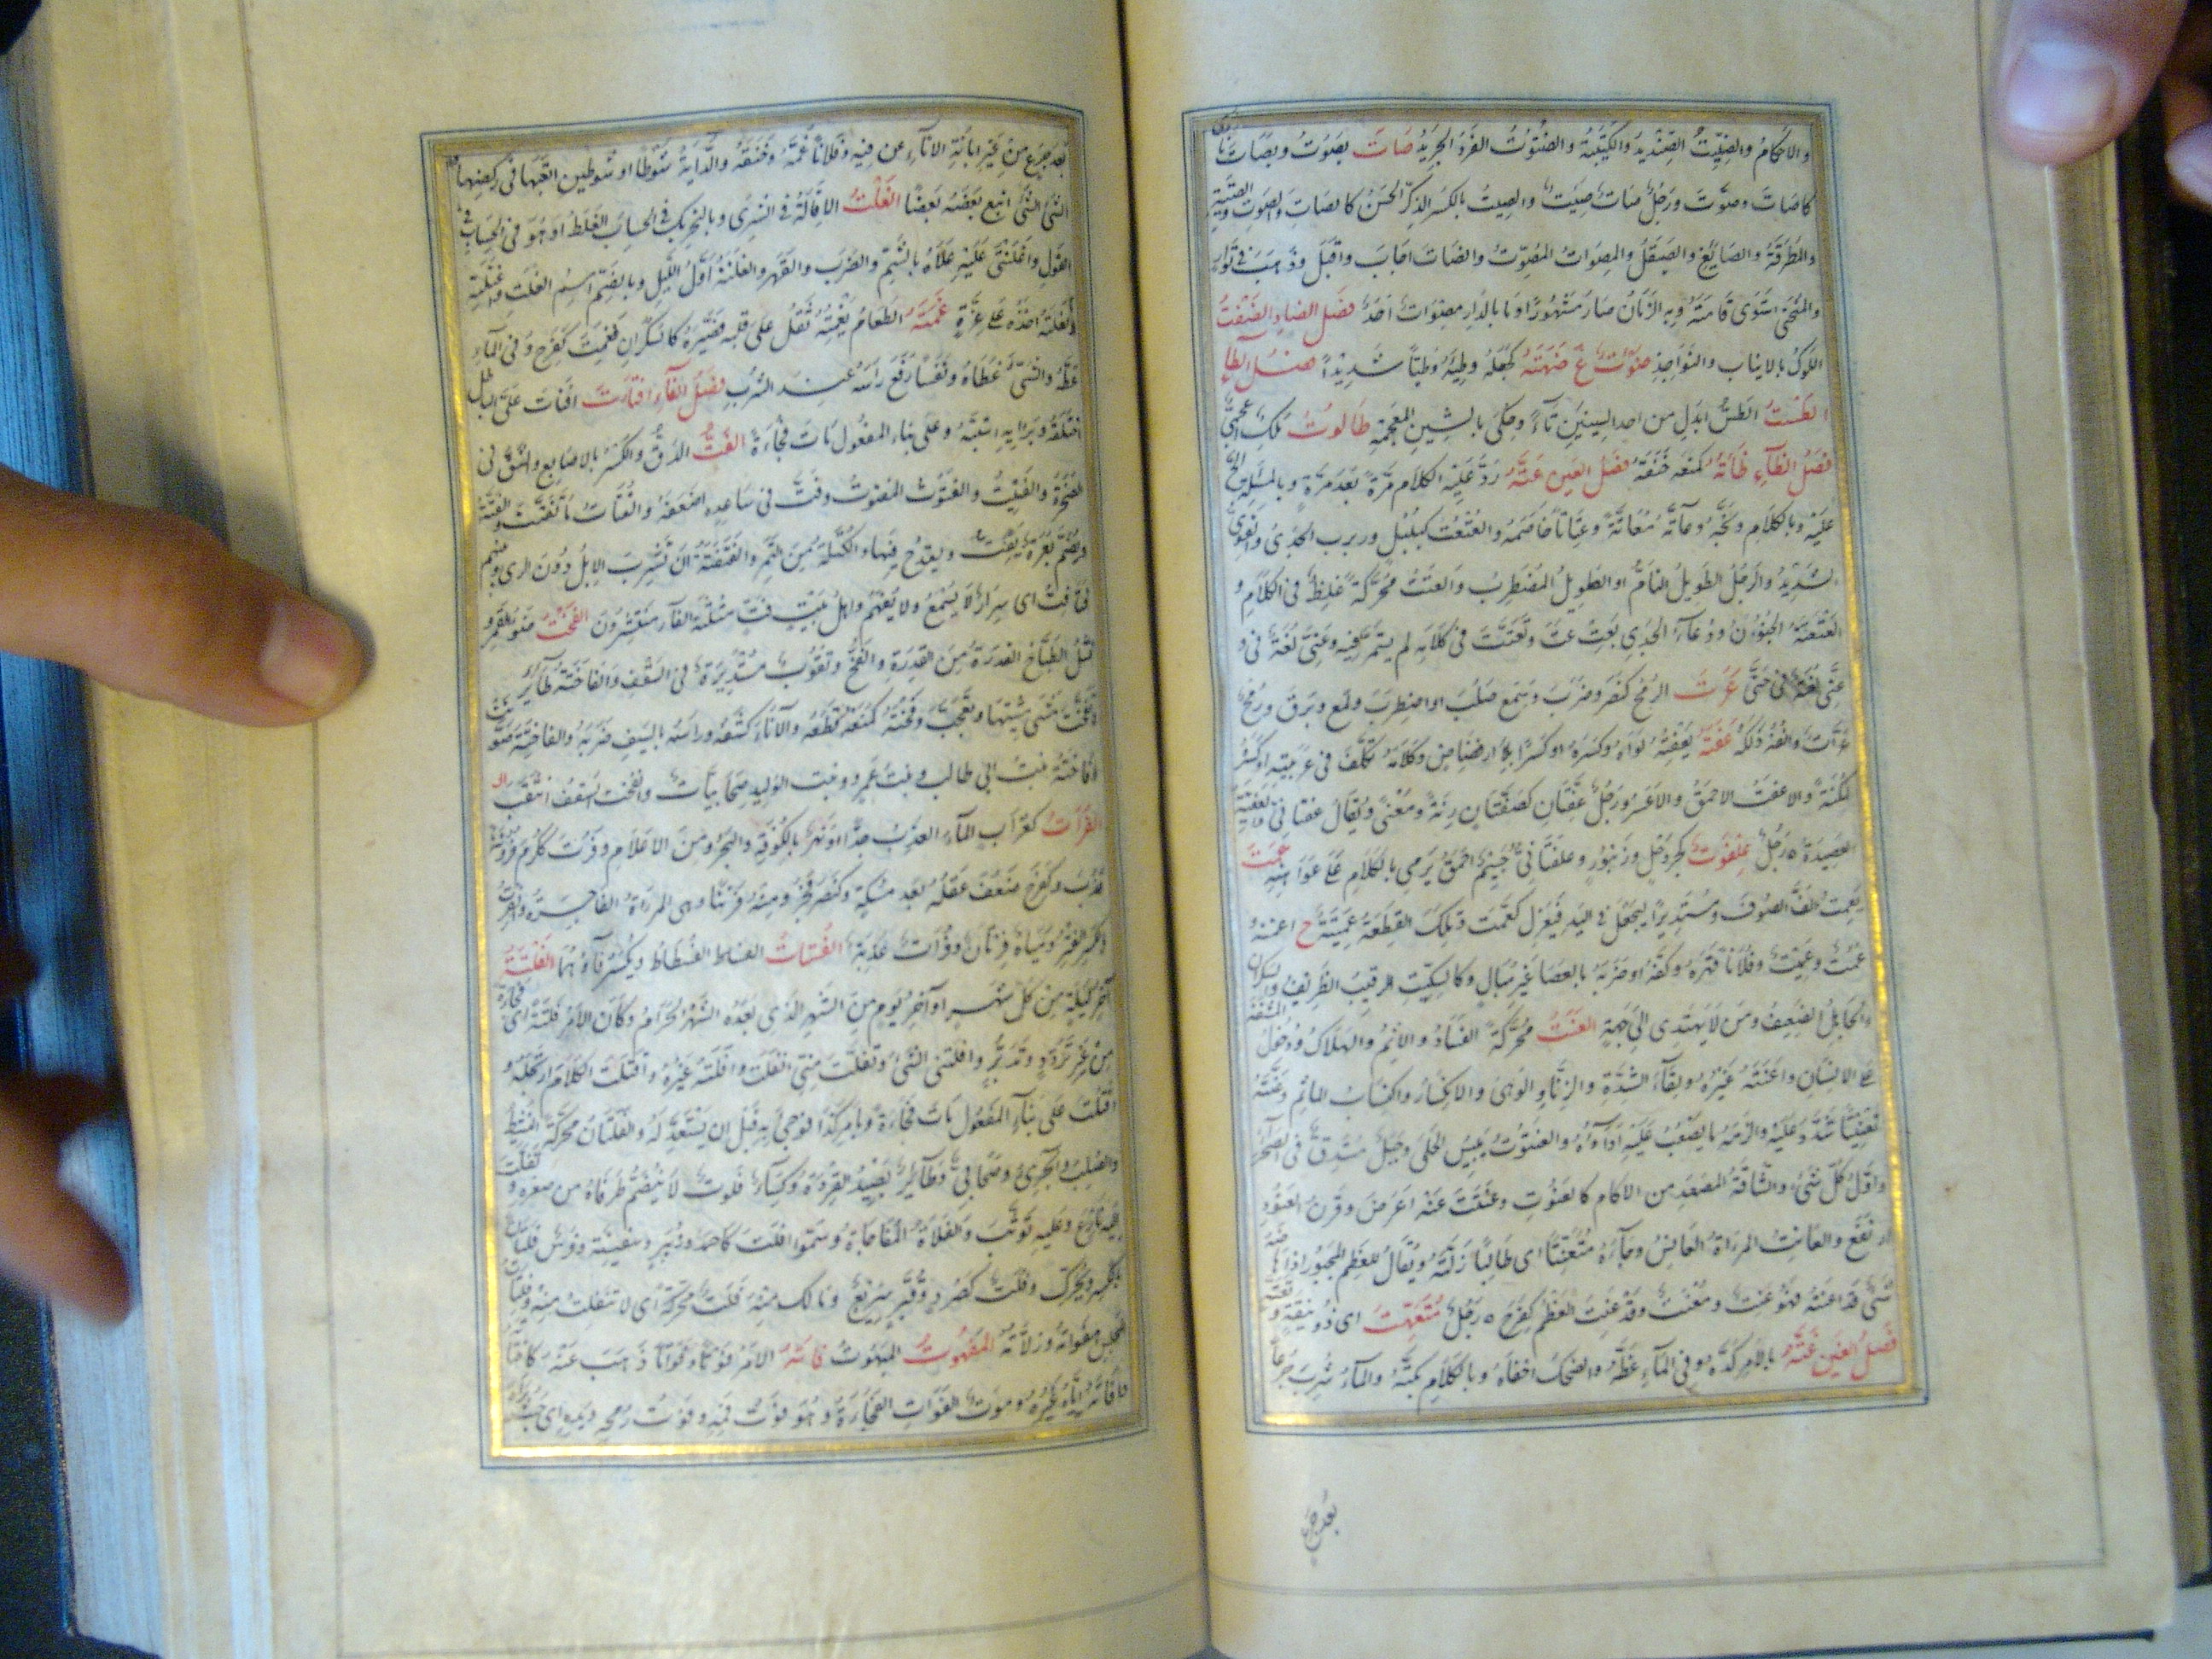 والاحكام والصِنْتيتُ الصِنْديدُ والكَتيبَةُ والصُنْتوتُ الفَرْدُ الحَريدُ صَاتَ يَصُوتُ ويَصاتُ
كاصاتَ وصَوَّتَ ورَجُلٌ صاتٌ صَيِّتٌ والصيتُ بالكسر الذِكْرُ الحَسَنُ كالصاتِ والصَوتِ
والمِطْرَقَةُ والصايغُ والصَيْقَلُ والمِصْواتُ المُصَوِّتُ وانصاتَ اجابَ واقبلَ وذهبَ في تَوارٍ
والمُنْحَنى استَوى قامَتُه وبه الزمانُ صار مشهورًا وما بالدار مِصْواتٌ احدٌ فصل الضاد الضَغْتُ
اللَوكُ بالانياب والنواجذ ضَوْتٌ ع ضَهَتَهُ كجَعَلَهُ وَطِئَهُ وَطْئًا شديدًا فصل الطاء
الطَسْتُ الطَسُّ ابدل من احد السينين تاءٌ وحُكي بالشين المعجمة طالوتُ مَلِكٌ اعجميّ
فصل الظاء ظَأتَهُ كمَنَعَه خَنَقَه فصل العين عَتَّهُ رَدَّ عليه الكلام مَرَّةً بعد مَرَّةٍ وبالمسئلة
عليه وبالكلام وبَّخَهُ وعاتَّهُ مُعاتَّةً وعِتاتًا خاصَمَه والعُتْعُتُ كبُلْبُلٍ وربرب الجَدْيُ
الشديد والرجل الطويل التامُّ او الطويل المضطرب والعَتَتُ محرّكةً غِلَظٌ في الكلام و
العَتْعَتَةُ الجنون ودعاء الجدي بعَتْ عَتْ وتَعَتَّتَ في كلامه لم يستمرّ فيه وعَتّى لغة في
حَتّى عَرَتَ الرمحُ كنَصَرَ وضَرَبَ وسَمِعَ صَلُبَ او اضطربَ ولمع وبرق ورمح
عَرّاتٌ وانفَه دَلَكَهُ عَفَتَهُ يَعْفِتُهُ لواهُ وكسره او كسرًا بلا ارفضاض وكلامَه تكلّف في عربيّته او كسره
لُكْنَةً والاعفت الاحمق والاعسر ورجل عِفِتّانٌ كصِفِتّانٍ زِنَةً ومعنًى ويقال عفتاني والعفيتة
العصيدة ه رجل عِلْفَوتٌ كجِرْدَحْلٍ وزنبور وعلفتانيّ جسيم احمق يرمي بالكلام على عواهنه عَمَتَ
يَعْمِتُ لَفَّ الصوفَ مستديرًا ليجعل في اليد فيغزل كعَمَّتَ وتلك القطعة عَميتَةٌ ج اعمتة و
عُمُتٌ وعَميتٌ وفلانًا قهره وكفّه او ضربه بالعصا غير مبال وكالسِكّيت الرقيب الظريف والسكران
والجاهل الضعيف ومن لا يهتدي الى جهة العَنَتُ محرّكة الفساد والاثم والهلاك ودخول المشقّة
على الانسان واعنته غيره ولقاء الشدة والزنا والوهي والانكسار واكتساب المأثم وعنّته
تعنيتًا شدّد عليه والزمه ما يصعب عليه اداؤه والعنتوت يبيس الحلى وجبل مستدقّ في الصحراء
واوّل كلّ شيء والشاقّة المصعد من الاكام كالعَنوتِ وعَنْتَتَ عنه اعرض وقرن العتود
ارتفع والعانت المرأة العانس وجاءه متعنّتًا اي طالبًا زلّته ويقال للعظم المجبور اذا هاضه
شيء قد اعنته فهو عَنِتٌ ومُعْنَتٌ وقد عنت العظم كفرح ه رجل مُتَعَهِّتٌ اي ذو نيقة و
فصل الغين غَتَّهُ بالامر كدَّه وفي الماء غطّه والضحك اخفاه وبالكلام بكّته والماءَ شرب جرعًا
بعد جرع
بعد جرع من غير ابانة الاناء عن فيه وفلانًا غمّه وخنقه والدابة شوطًا او شوطين اتعبها في ركضها
الشيءَ الشيءَ اتبع بعضه بعضًا الغَلْتُ الاقالة في الشرى وبالتحريك في الحساب الغلط او هو في الحساب
القول واغلنتى عليه علاه بالشتم والضرب والقهر والغلتة اول الليل وبالضم اسم الغلت
وتغلّته اخذه على غِرّةٍ غَمَتَهُ الطعامُ يغمته ثقل على قلبه فصيّره كالسكران فغمت كفرح وفي الماء
غطّه والشيءَ غطّاه ونَفَسًا رفع رأسه عند الشرب فصل الفاء افتأت عليّ الباطل
اختلقه وبرأيه استبدّ وعلى بناء المفعول مات فجأة الفَتُّ الدقّ والكسر بالاصابع والشقّ في
الصخرة والفتيت والفتوت المفتوت وفتّ في ساعده اضعفه والفتات ما تفتّت والفتّة
ويضمّ بعرة تفتّ ويقدح فيها والكتلة من التمر والفتفتة ان تشرب الابل دون الري
فتافتٌ اي سرار لا يسمع ولا يفهم واهل بيت فتّ مثلثة الفاء منتشرون الفَخْتُ ضوء القمر و
نشل الطبّاخ الفدرة من القدرة والفخّ وثقوب مستديرة في السقف والفاختة طائر
وتفخّت مشى مشيتها وتعجّب وفخته كمنعه قطعه والاناء كشفه ورأسه بالسيف ضربه والفاختة
وفاختة بنت ابي طالب وبنت عمرو وبنت الوليد صحابيات وانفخت السقف انثقب
الفُراتُ كغراب الماء العذب جدًّا ونهر بالكوفة والبحر ومن الاعلام وفرت ككرم فروتة
عذب وكفرح ضعف عقله بعد مسكة وكنصر فجر ومنه فرتنا وهي المرأة الفاجرة
بالكسر الفتر ومياه فرتان وفرات عذبة الفستات الفساط الفسطاط ويكسر فاؤهما الفَلْتَةُ
آخر ليلة من كل شهر او آخر يوم من الشهر الذي بعده الشهر الحرام وكان الامر فلتة اي فجأة
من غير تردّد وتدبّر وافلتني الشيء وتفلّت منّي انفلت وافلته غيره وافتلت الكلام ارتجله و
افتلت على بناء المفعول مات فجأة وبامر كذا فوجئ به قبل ان يستعدّ له والفلتان محرّكة النشيط
والصلب والجريء وصحابيّ وطائر يصيد القردة وكساء فلوت لا ينضمّ طرفاه من صغره و تفلّت
اليه نازع وعليه توثّب والفلاة المفاجاة وسمّوا افلت كاحمد وزبير وسفينة وفرس فلتان
بالكسر ويحرّك وفلت كصرد وقبّر سريع ومالك منه فلت محرّكة اي لا تنفلت منه
المجلس هفواته وزلّاته المَفْهوتُ المبهوت فاتَهُ الامر فوتًا وفواتًا ذهب عنه كافتاته
وافاته ايّاه غيره وموت الفوات الفجأة وهو فوت فمه وفوت رمحه ويده اي